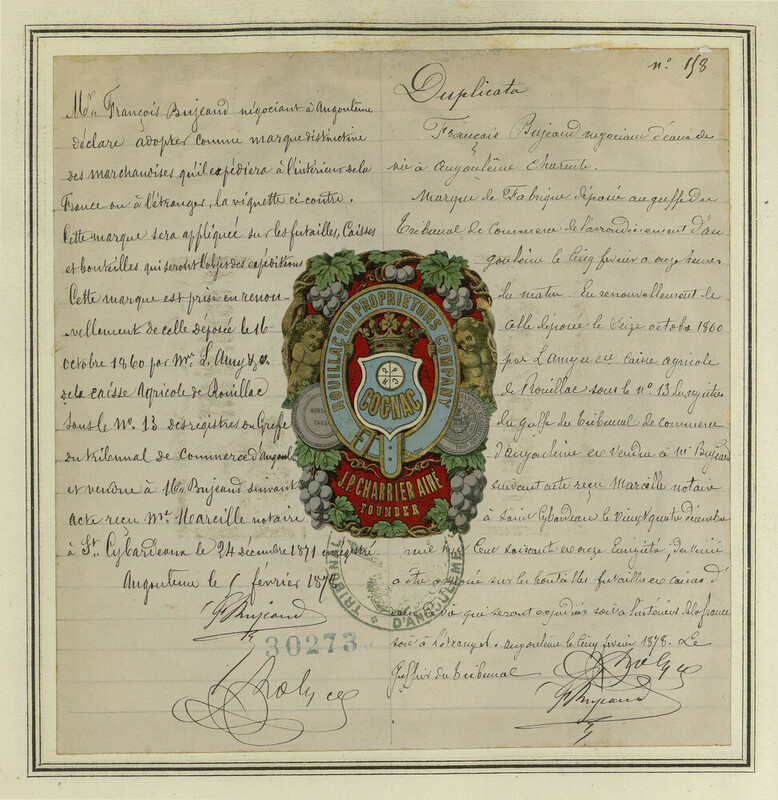 Mr François Bujeaud négociant à Angoulême
déclare adopter comme marque distinctive
des marchandises qu'il expédiera à l'intérieur de la
France ou à l'étranger, la vignette ci-contre.
Cette marque sera appliquée sur les futailles, Caisses
et bouteilles qui seront l'objet des expéditions
Cette marque est prise en renou-
vellement de celle déposée le 16
octobre 1860 par Mr L. Amy & Ce
de la caisse Agricole de Rouillac
sous le No 13 des registres du Greffe
du tribunal de Commerce d'Angoulême
et vendue à Mr Bujeaud suivant
acte reçu Me Marcille notaire
à St Cybardeaux le 24 décembre 1871 enregistré
Angoulême le février
F Bujeaud
30273
no 158
Duplicata
François Bujeaud négociant d'eaux de
vie à Angoulême Charente.
Marque de Fabrique déposée au greffe du
Tribunal de Commerce de l'arrondissement d'An
goulême le Cinq février à onze heures
du matin. En renouvellement de
celle déposée le Seize octobre 1860
par L. Amy et Cie caisse agricole
de Rouillac sous le no 13 des registres
du greffe du Tribunal de commerce
d'Angoulême et vendue à Mr Bujeaud
suivant acte reçu Marcille notaire
à Saint Cybardeau le Vingt quatre décembre
mil huit Cent soixante et onze Enregistré,
sur les bouteilles futailles et caisses d'
qui seront expédiés soit à l'intérieur de la france
soit à l'étranger. Angoulême le Cinq février 1878. Le
Greffier du Tribunal
F Bujeaud
ROUILLAC 200 PROPRIETORS COMPANY
COGNAC
J.P. CHARRIER AINÉ
FOUNDER
TRIBUNAL
D'ANGOULEME